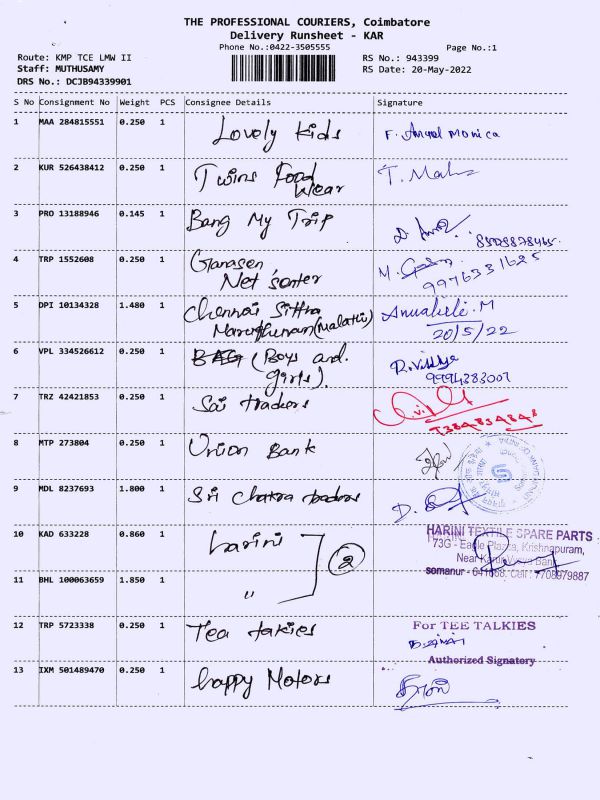 THE PROFESSIONAL COURIERS, Coimbatore
Delivery Runsheet - KAR
Phone No.:0422-3505555
Page No.:1
Route: KMP TCE LMW II
RS No.: 943399
Staff: MUTHUSAMY
RS Date: 20-May-2022
DRS No.: DCJB94339901
S No Consignment No Weight PCS Consignee Details Signature
1 MAA 284815551 0.250 1 Lovely Kids F. Angel Monica
2 KUR 526438412 0.250 1 Twins Food
Wear
3 PRO 13188946 0.145 1 Bang My Trip
8508878465.
4 TRP 1552608 0.250 1
Net senter
9976331625
5 DPI 10134328 1.480 1 Chennai
(Malathi)
20/5/22
6 VPL 334526612 0.250 1 (Boys and.
girls).
R. Vidhya
9994383007
7 TRZ 42421853 0.250 1 Sai traders
7384834848
8 MTP 273804 0.250 1 Union Bank
9 MDL 8237693 1.800 1 Sri Chakra traders
10 KAD 633228 0.860 1 harini
2
HARINI TEXTILE SPARE PARTS
73G - Eagle Plazza, Krishnapuram,
Near Karur Vysya Bank
somanur - 641668. Cell : 7708979887
11 BHL 100063659 1.850 1 "
12 TRP 5723338 0.250 1 Tea talkies
For TEE TALKIES
Authorized Signatory
13 IXM 501489470 0.250 1 happy Motors